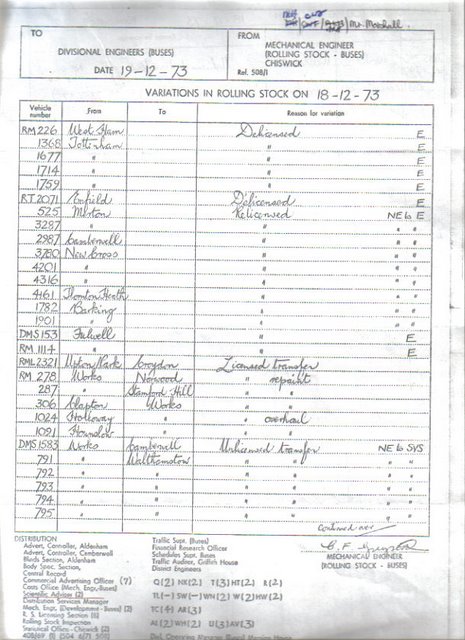 Mr. Marshall.
TO
DIVISIONAL ENGINEERS (BUSES)
DATE 19-12-73
FROM
MECHANICAL ENGINEER
(ROLLING STOCK - BUSES)
CHISWICK
Ref. 508/1
VARIATIONS IN ROLLING STOCK ON 18-12-73
Vehicle number From To Reason for variation
RM 226 West Ham Delicensed E
1368 Tottenham " E
1677 " " E
1714 " " E
1759 " " E
RT 2071 Enfield Delicensed E
525 Merton Relicensed NE to E
3287 " " " "
2987 Camberwell " " "
3780 New Cross " " "
4201 " " " "
4316 " " " "
4161 Thornton Heath " " "
1782 Barking " " "
1901 " " " "
DMS 153 Fulwell " E
RM 1114 " " E
RML 2321 Upton Park Croydon Licensed transfer
RM 278 Works Norwood " repaint
287 " Stamford Hill " "
306 Clapton Works " "
1024 Holloway " " overhaul
1091 Hounslow " " "
DMS 1583 Works Camberwell Unlicensed transfer NE to SVS
791 " Walthamstow " " " "
792 " " " " " "
793 " " " " " "
794 " " " " " "
795 " " " " " "
Continued over
MECHANICAL ENGINEER
(ROLLING STOCK - BUSES)
DISTRIBUTION
Advert, Controller, Aldenham
Advert, Controller, Camberwell
Blinds Section, Aldenham
Body Spec. Section,
Central Record
Commercial Advertising Officer (7)
Cous Office (Mech. Engr-Buses)
Scientific Adviser (2)
Distribution Services Manager
Mech. Engr. (Development-Buses) (2)
R. S. Licensing Section (6)
Rolling Stock Inspection
Statistical Office - Chiswick (2)
Traffic Supt. (Buses)
Financial Research Officer
Schedules Supt. Buses
Traffic Auditor, Griffith House
District Engineers
Q(2) NK(2) T(3) HT(2) R(2)
TL(-) SW(-) WN(2) W(2) HW(2)
TC(4) AR(3)
A(2) WH(2) U(3) AV(3)